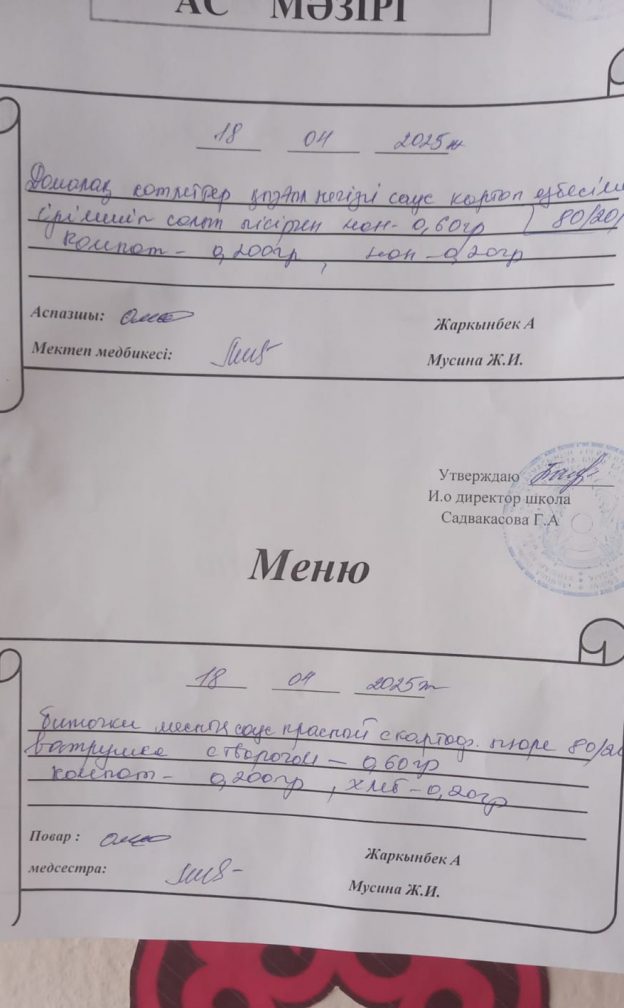 АС МӘЗІРІ
18 04 2025ж
Домалақ котлеттер негізгі соус картоп езбесімен
ірімшік салып пісірген нан - 0,60гр 80/20/
компот - 0,200гр, нан - 0,20гр
Аспазшы: Жаркынбек А
Мектеп медбикесі: Мусина Ж.И.
Утверждаю
И.о директор школа
Садвакасова Г.А
Меню
18 04 2025ж
Биточки мясной соус красной с картоф. пюре 80/20
ватрушка с творогом - 0,60гр
компот - 0,200гр, хлеб - 0,20гр
Повар : Жаркынбек А
медсестра: Мусина Ж.И.